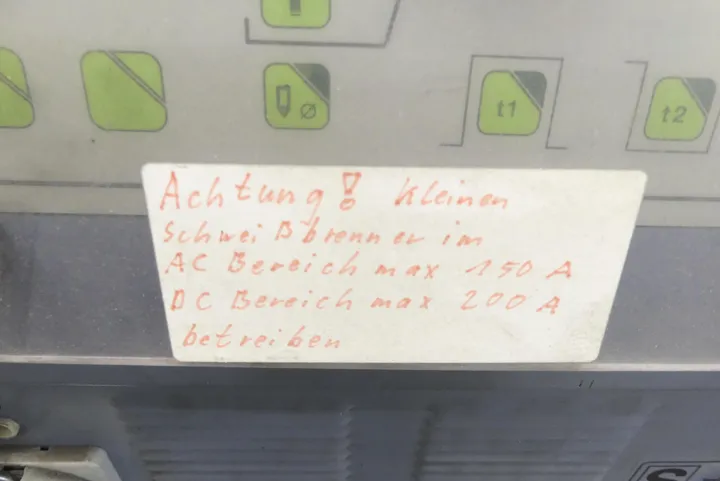 Ø
t1
t2
Achtung! kleinen
Schweißbrenner im
AC Bereich max 150 A
DC Bereich max 200 A
betreiben